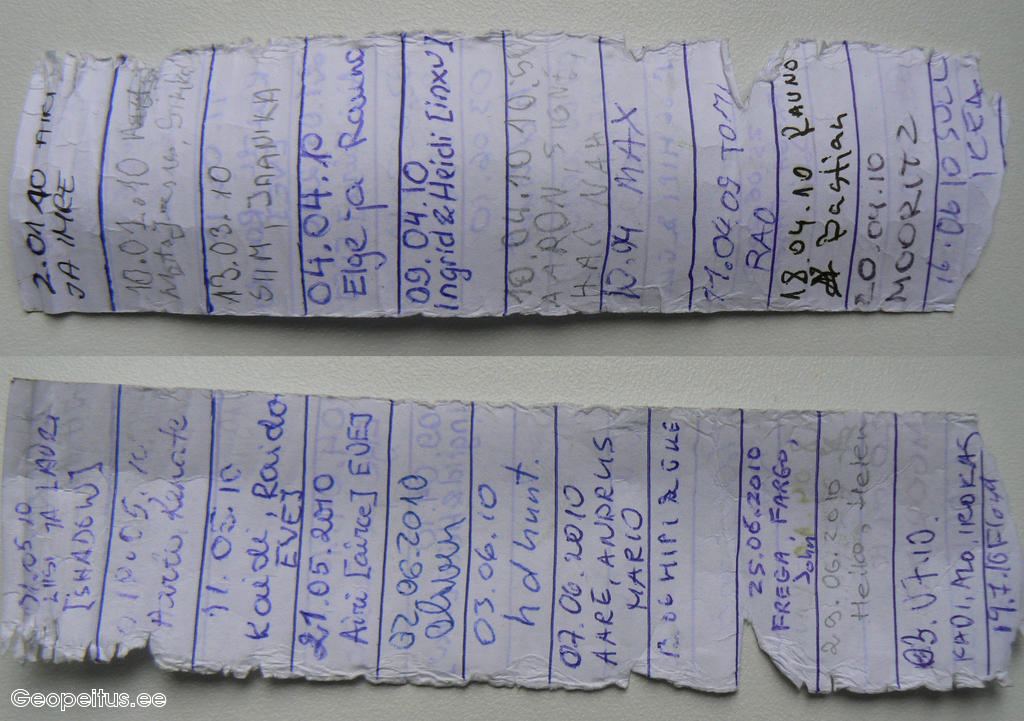 2.01.10
JA IMRE
10.01.10
13.03.10
SIIM, JAANIKA
04.04.10
Elge ja Rauno
09.04.10
Ingrid & Heidi [inxu]
10.04.10
AARON, SIGNE,
HANNAH
10.04 MAX
11.04.09 TOMI
RAO
18.04.10 RAUNO
Bastian
20.04.10
MOORITZ
16.06.10
ICEA
01.05.10
JA LAURI
[SHADOW]
10.05.10
11.05.10
Kaidi, Raido
EVEJ
21.05.2010
Airi [airce] EVEJ
02.06.2010
03.06.10
hdhunt.
07.06.2010
AARE, ANDRUS
MARIO
25.06.2010
FREGA, FARGO,
29.06.2010
Heiko, Helen
03.VII.10.
KADI, Mo,
19.7.10
Geopeitus.ee